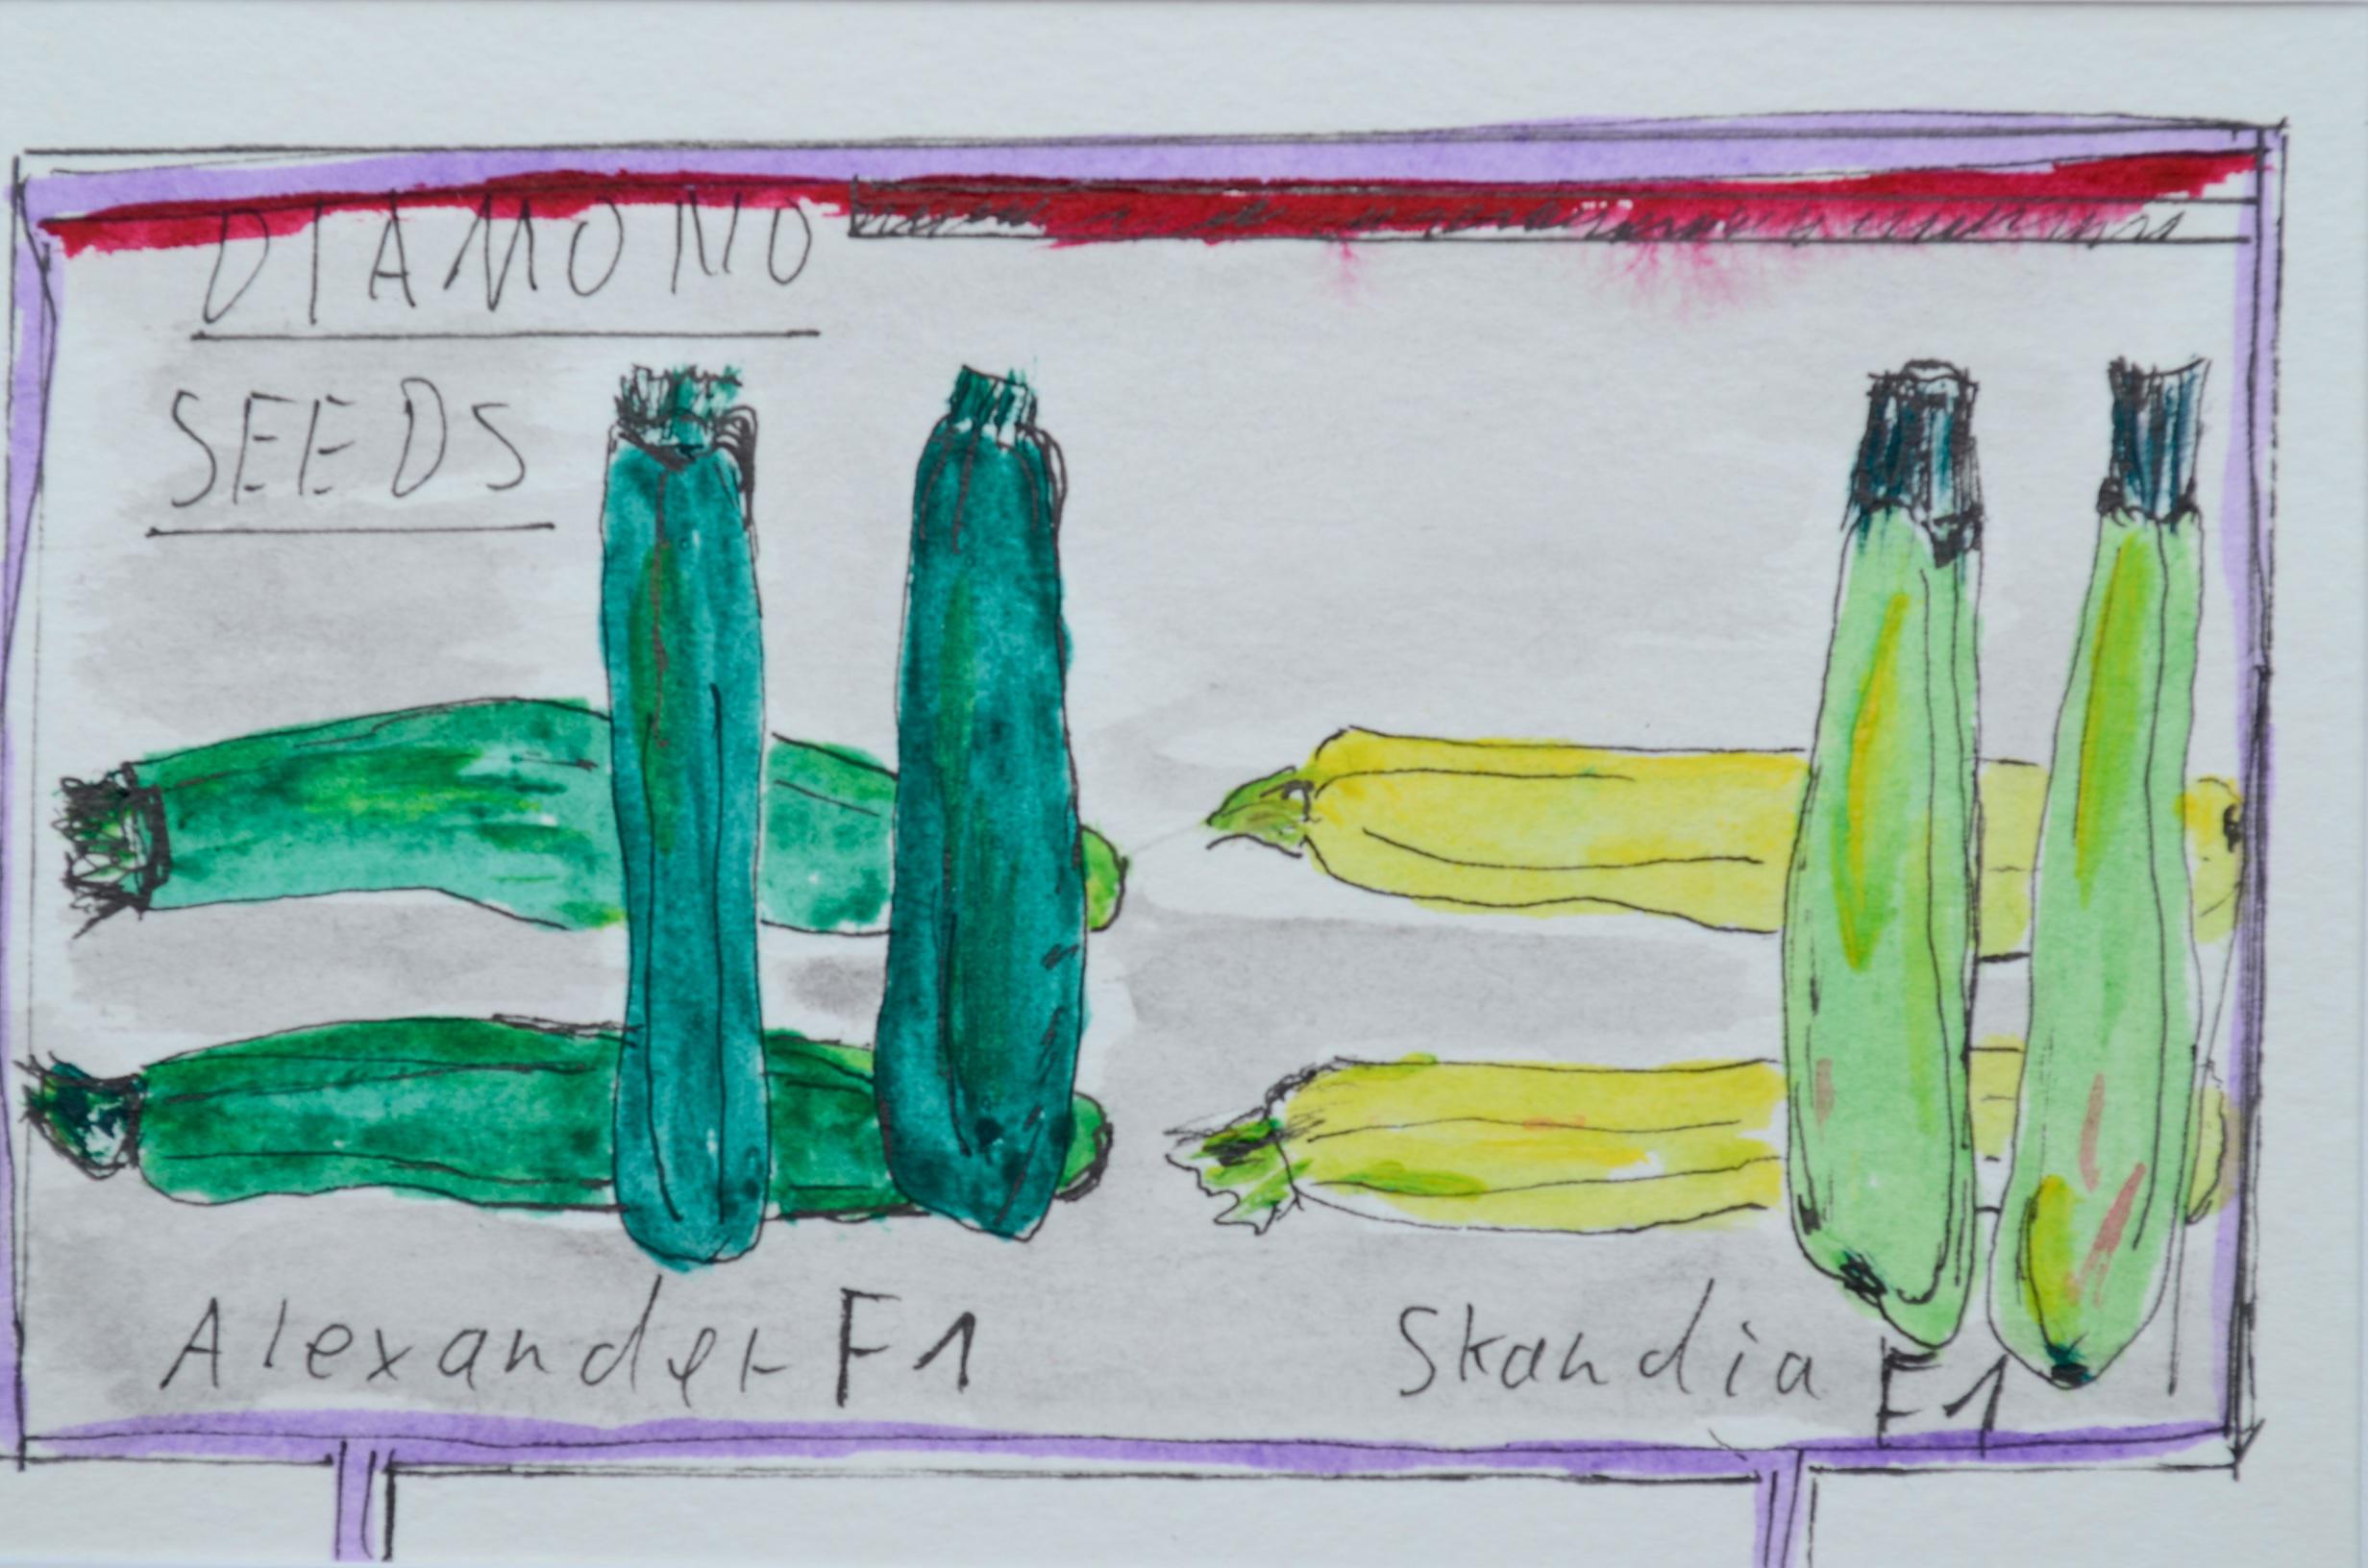 DIAMOND
SEEDS
Alexander F1
Skandia F1